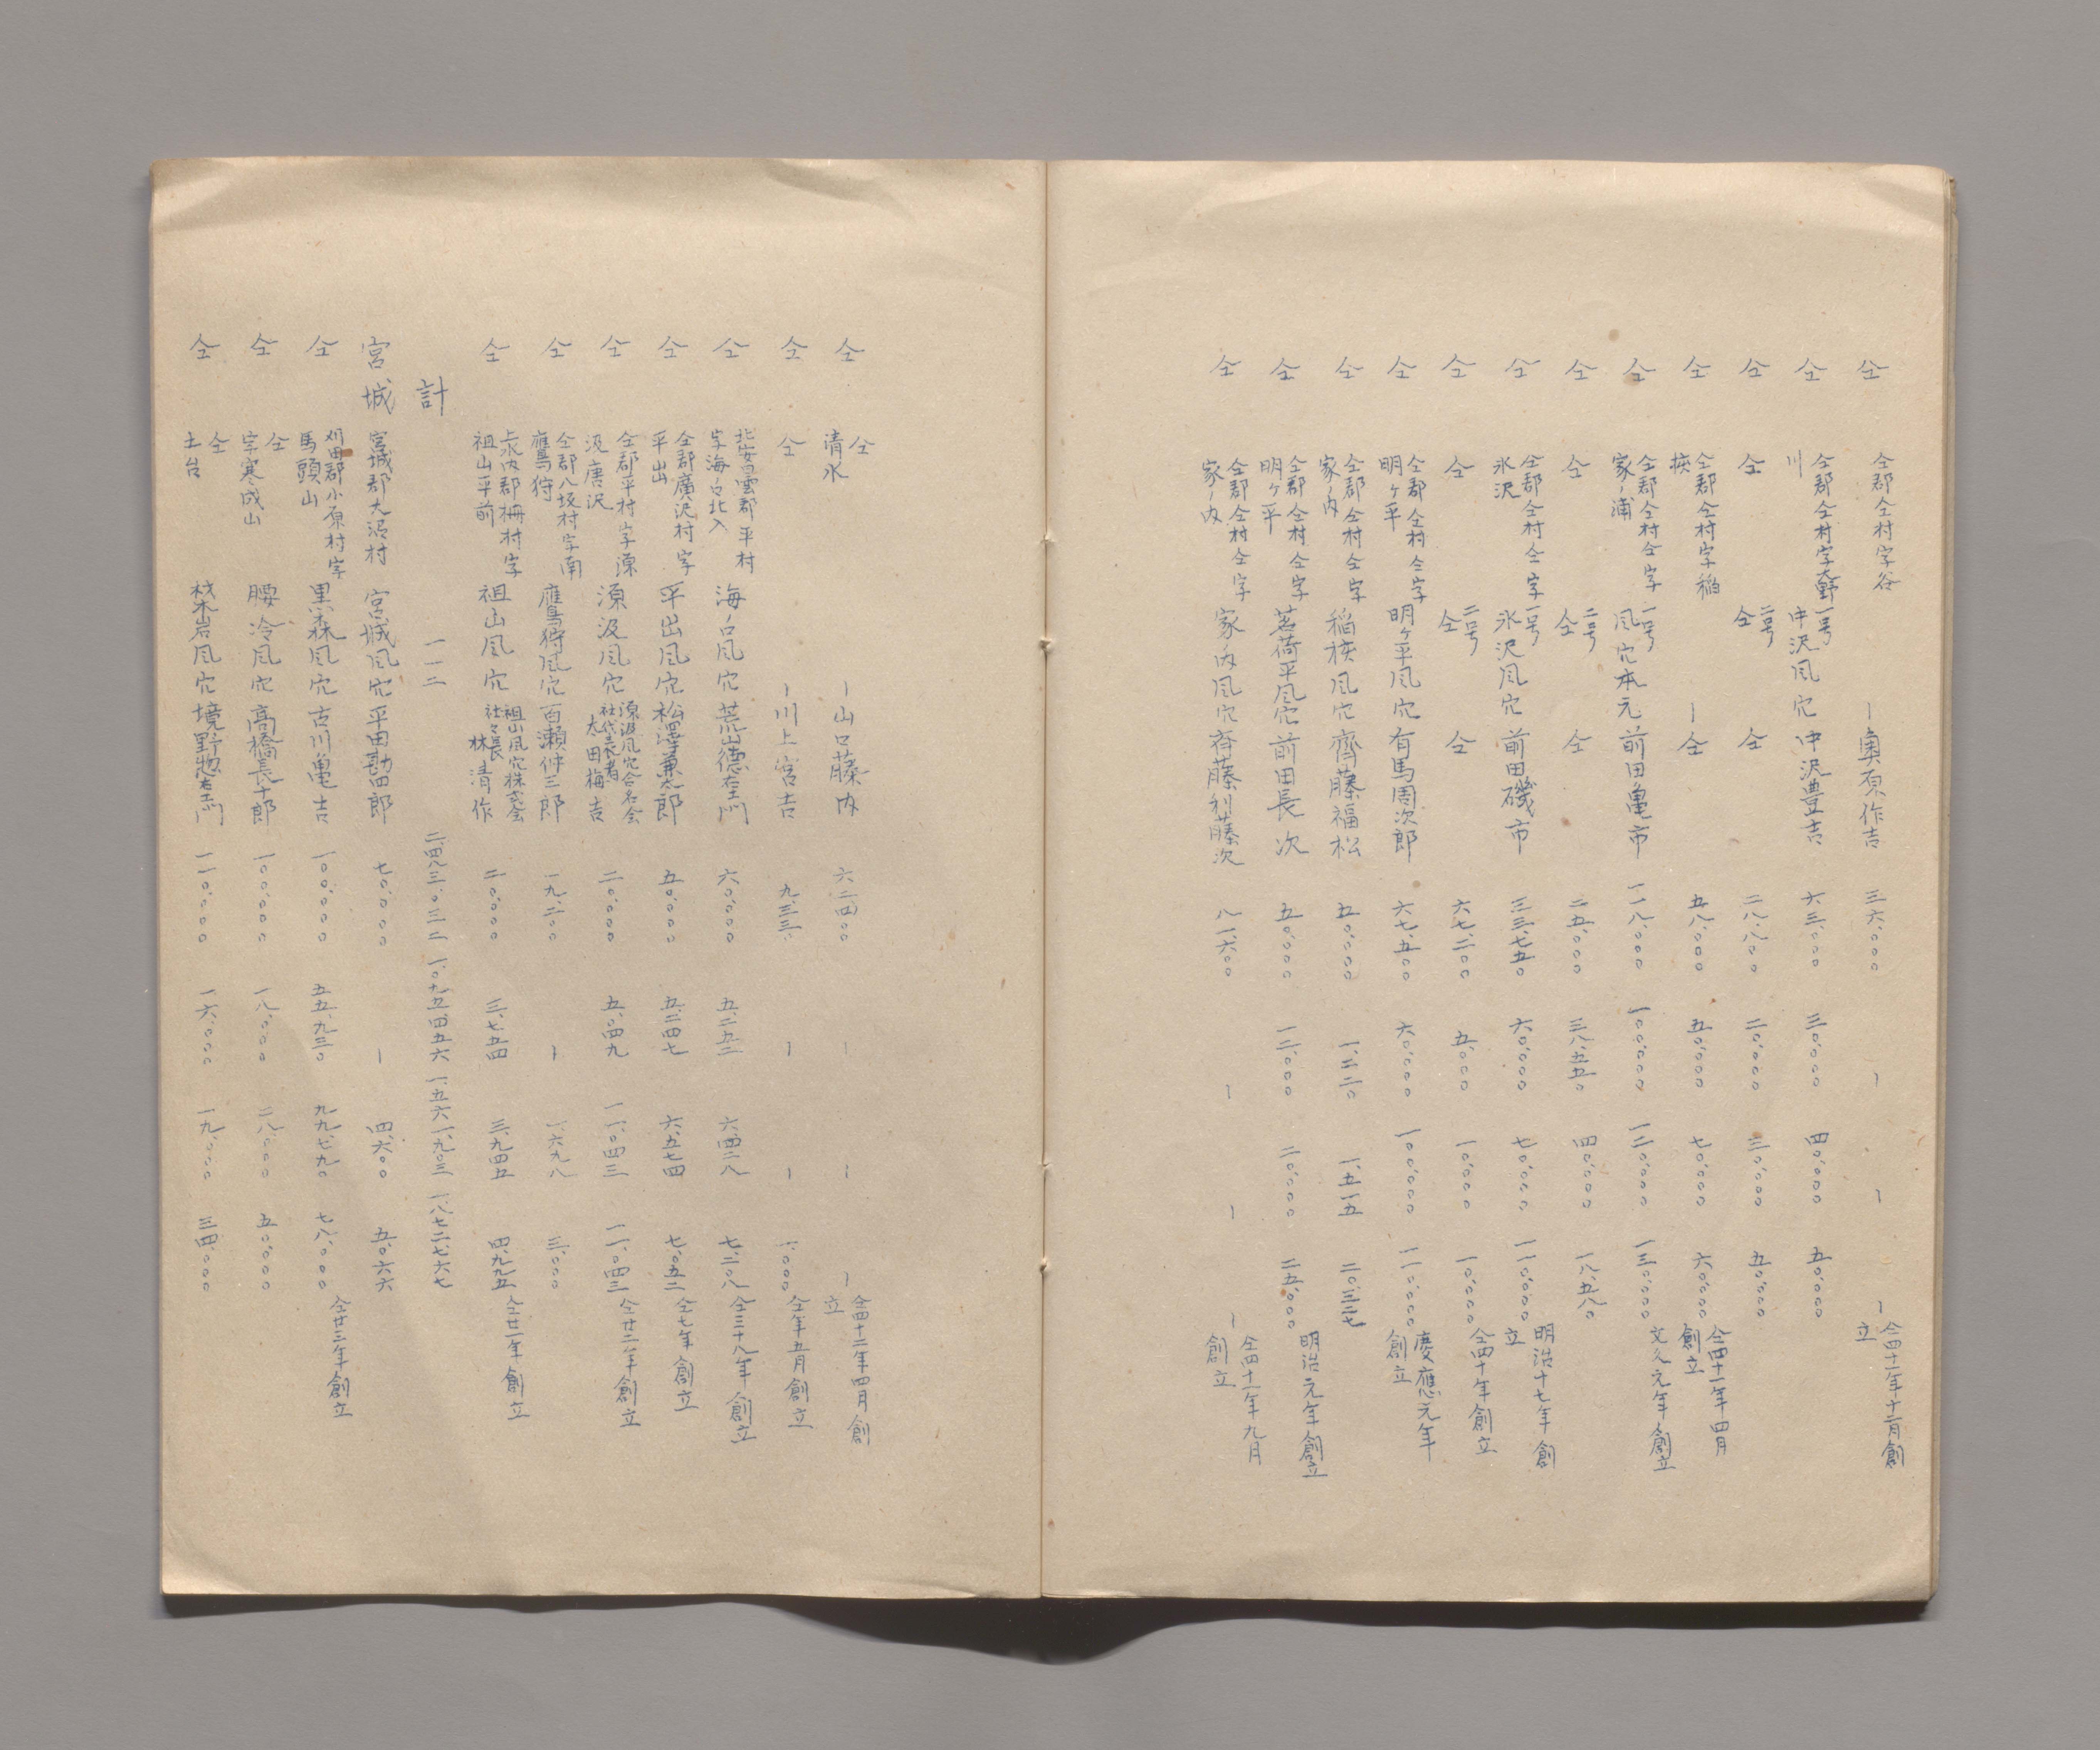 仝 仝郡仝村字谷 ー 奥原作吉 三六、〇〇〇 ー ー ー 仝四十一年十一月創立
仝 仝郡仝村字大野川 一号中沢風穴 中沢豊吉 六三、〇〇〇 三〇、〇〇〇 四〇、〇〇〇 五〇、〇〇〇
仝 仝 二号仝 仝 二八、八〇〇 二〇、〇〇〇 三〇、〇〇〇 五〇、〇〇〇
仝 仝郡仝村字稲挾 ー 仝 五八、〇〇〇 五〇、〇〇〇 七〇、〇〇〇 六〇、〇〇〇 仝四十一年四月創立
仝 仝郡仝村仝字家ノ浦 一号風穴本元 前田亀市 一一八、〇〇〇 一〇〇、〇〇〇 一二〇、〇〇〇 一三〇、〇〇〇 文久元年創立
仝 仝 二号仝 仝 二五、〇〇〇 三八、五五〇 四〇、〇〇〇 一八、五八〇
仝 仝郡仝村仝字氷沢 一号氷沢風穴 前田磯市 三三、七五〇 六〇、〇〇〇 七〇、〇〇〇 一一〇、〇〇〇 明治十七年創立
仝 仝 二号仝 仝 六七、二〇〇 五、〇〇〇 一〇、〇〇〇 一〇、〇〇〇 仝四十年創立
仝 仝郡仝村仝字明ヶ平 明ヶ平風穴 有馬周次郎 六七、五〇〇 六〇、〇〇〇 一〇〇、〇〇〇 一一〇、〇〇〇 慶應元年創立
仝 仝郡仝村仝字家ノ内 稲挾風穴 齊藤福松 五〇、〇〇〇 一、二二〇 一、五一五 二〇、三二七
仝 仝郡仝村仝字明ヶ平 茗荷平風穴 前田長次 五〇、〇〇〇 一二、〇〇〇 二〇、〇〇〇 二五、〇〇〇 明治元年創立
仝 仝郡仝村仝字家ノ内 家ノ内風穴 斉藤利藤次 八一、六〇〇 ー ー ー 仝四十一年九月創立
仝 仝清水 ー 山口藤内 六二、四〇〇 ー ー ー 仝四十二年四月創立
仝 仝 ー 川上宮吉 九、三三〇 ー ー 一、〇〇〇 仝年五月創立
仝 北安曇郡平村字海ノ口北入 海ノ口風穴 荒山徳右エ門 六〇、〇〇〇 五、二五二 六、四二八 七、三〇八 仝三十八年創立
仝 仝郡廣沢村字平出 平出風穴 松澤兼太郎 五〇、〇〇〇 五、二四七 六、五七四 七、〇五二 仝七年創立
仝 仝郡平村字源汲唐沢 源汲風穴 源汲風穴合名会社代表者太田梅吉 二〇、〇〇〇 五、〇四九 一一、〇四三 一一、〇四三 仝廿二年創立
仝 仝郡八坂村字南鷹狩 鷹狩風穴 百瀬仲三郎 一九、二〇〇 ー 一、六九八 三、〇〇〇
仝 上水内郡柵村字祖山平前 祖山風穴 祖山風穴株式会社々長林清作 二〇、〇〇〇 三、七五四 三、九四五 四、九九五 仝廿一年創立
計 一一二 二、四八三、〇三二 一、〇九五、四五六 一、五六一、九〇三 一、八七二、七六七
宮城 宮城郡大沼村 宮城風穴 平田勘四郎 七〇、〇〇〇 ー 四、六〇〇 五、〇六六
仝 刈田郡小原村字馬頭山 黒森風穴 古川亀吉 一〇〇、〇〇〇 五五、九三〇 九九、七九〇 七八、〇〇〇 仝廿三年創立
仝 仝字寒成山 腰冷風穴 高橋長十郎 一〇〇、〇〇〇 一八、〇〇〇 二八、〇〇〇 五〇、〇〇〇
仝 仝土台 材木岩風穴 境野惣右エ門 一一〇、〇〇〇 一六、〇〇〇 一九、〇〇〇 三四、〇〇〇